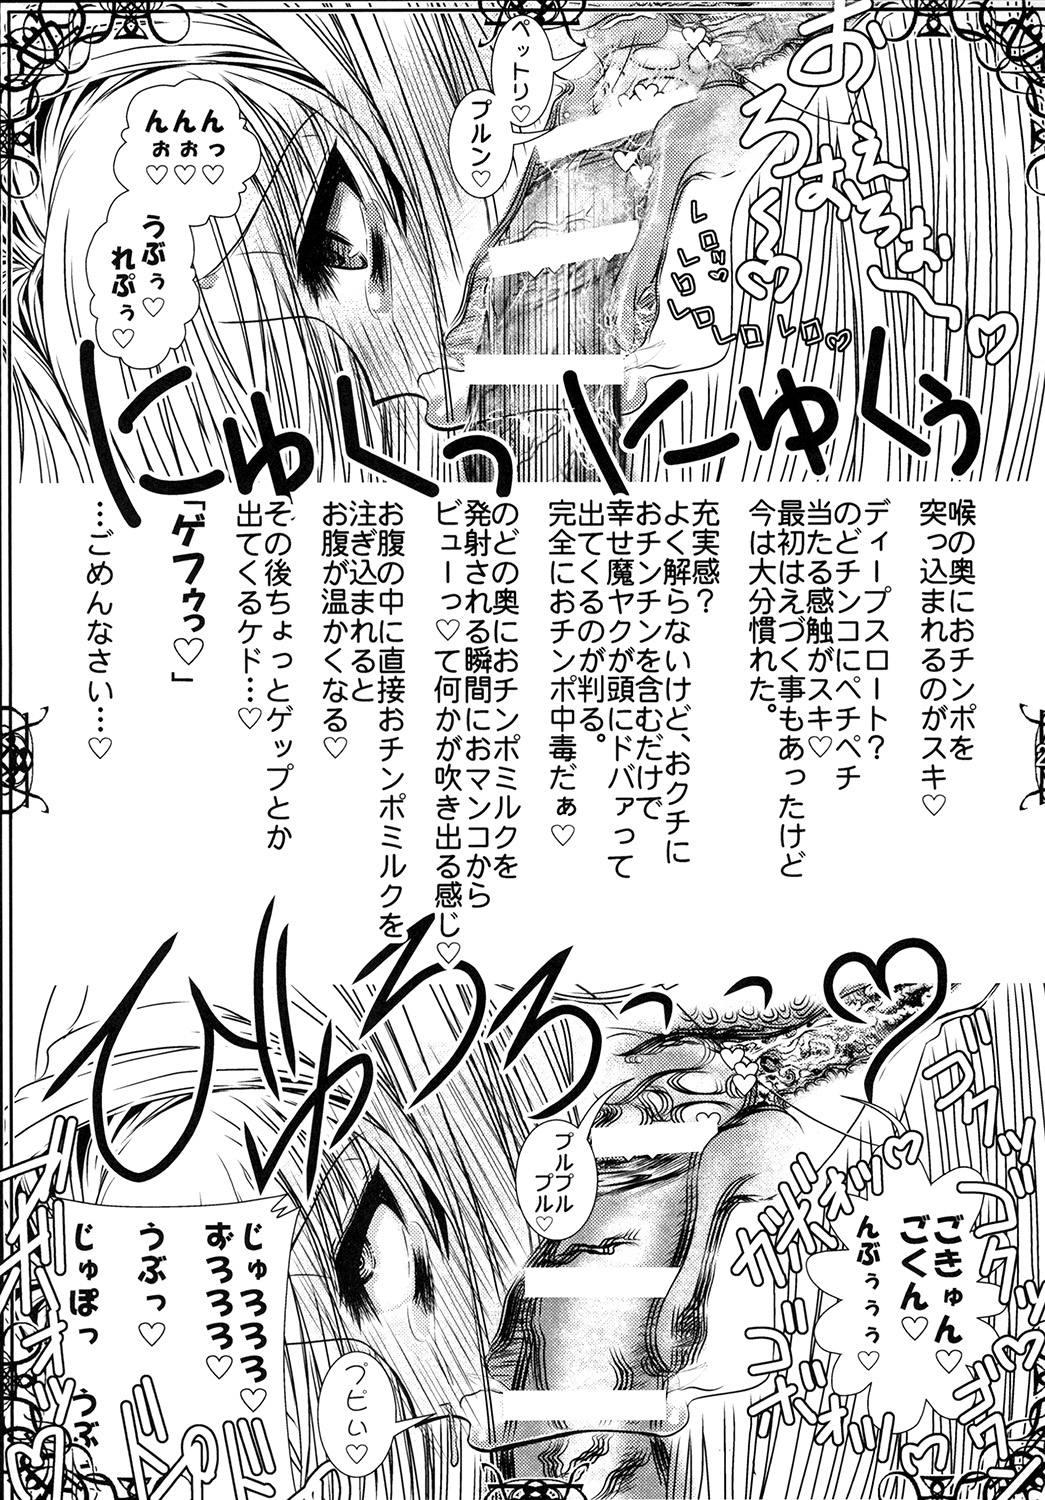 お
えろお〜♡
ろぉお
くく♡
ペットリ♡
プルン♡
んんっ♡
んぉぉ♡
うぶぅ♡
れぷぅ♡
レロン♡
レロレロレロレロ♡
にゅくっにゅくぅ
喉の奥におチンポを
突っ込まれるのがスキ♡
ディープスロート？
のどチンコにペチペチ
当たる感触がスキ♡
最初はえづく事もあったけど
今は大分慣れた。
充実感？
よく解らないけど、おクチに
おチンチンを含むだけで
幸せ魔ヤクが頭にドバァって
出てくるのが判る。
完全におチンポ中毒だぁ♡
のどの奥におチンポミルクを
発射される瞬間におマンコから
ビューって♡何かが吹き出る感じ♡
お腹の中に直接おチンポミルクを
注ぎ込まれると
お腹が温かくなる♡
その後ちょっとゲップとか
出てくるケド…♡
「ゲフゥっ♡」
…ごめんなさい…♡
びゅろろっっ♡
ゴクッ
ゴクッ
ごきゅん♡
ごくん♡
んぶぅぅぅ♡
ガボォッ♡
ガボォッ
プルプル
プル♡
じゅろろろ♡
ずろろろ♡
うぶっ♡
じゅぽっ
うぶ
プピぃ♡